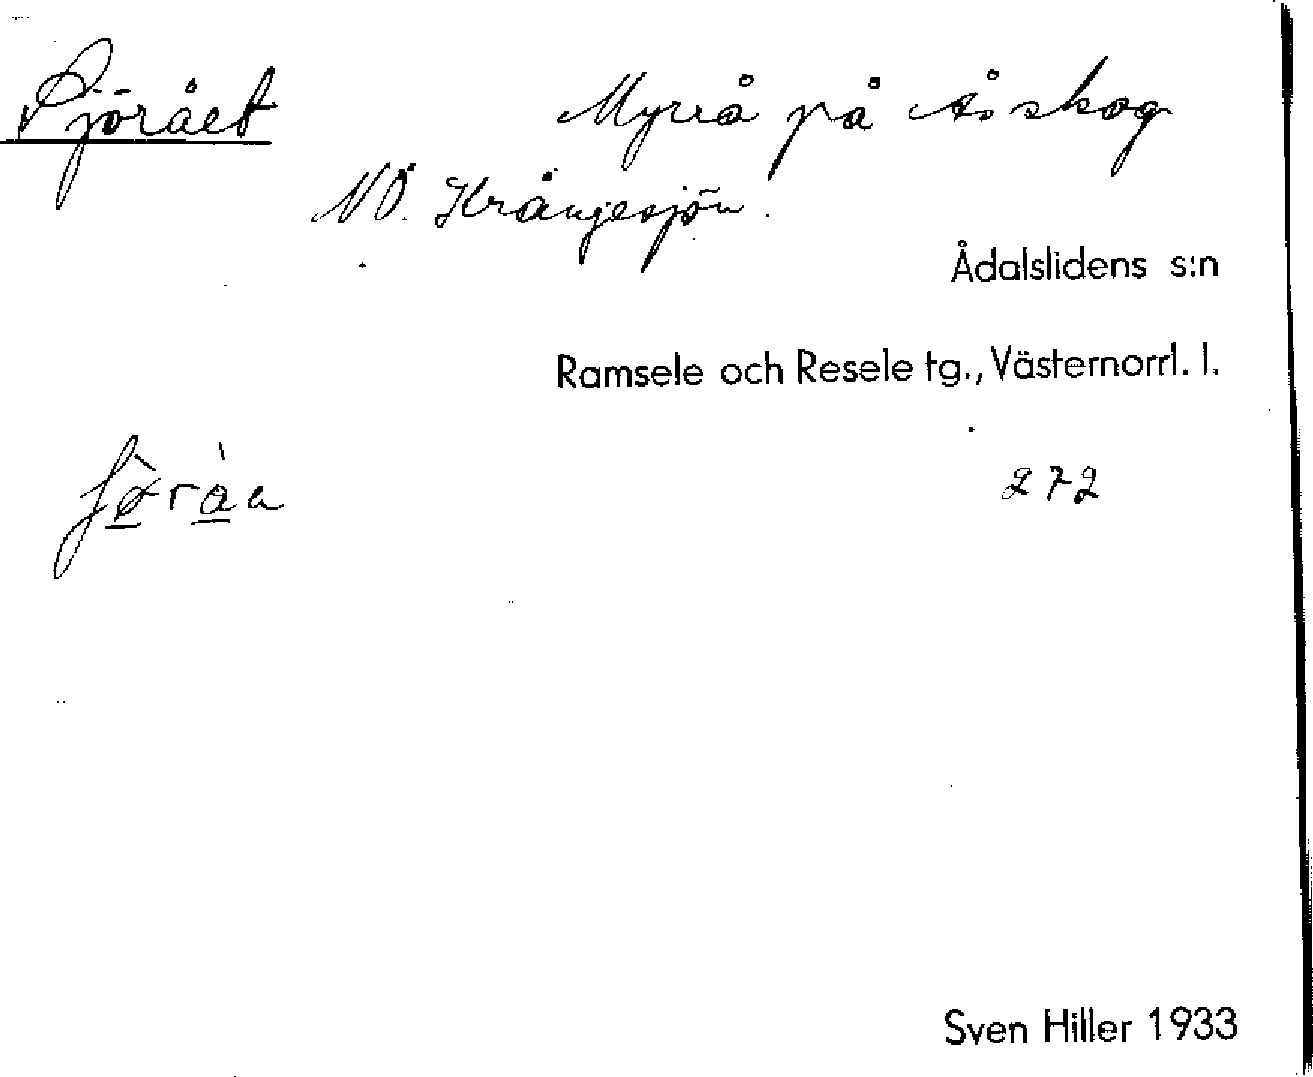 Sjörået Myrrå på Ås skog
NÖ. Krångesjön.
Ådalslidens s:n
Ramsele och Resele tg., Västernorrl. l.
272
Sven Hiller 1933